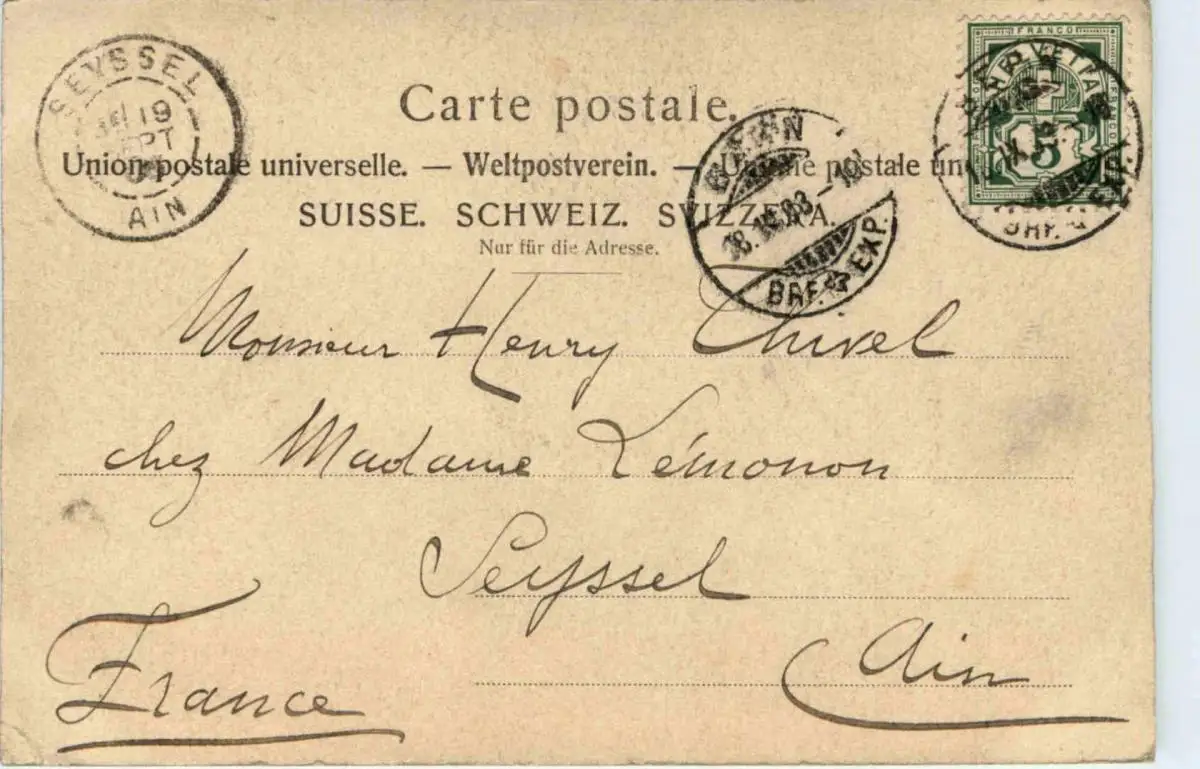 FRANCO
HELVETIA
5
SEYSSEL
19
SEPT
AIN
Carte postale.
Union postale universelle. — Weltpostverein. — Unione postale un
SUISSE. SCHWEIZ. SVIZZERA.
Nur für die Adresse.
BERN
18.IX.03
BRF. EXP.
BRF. EXP.
Monsieur Henry
chez Madame Lémonon
Seyssel
Ain
France